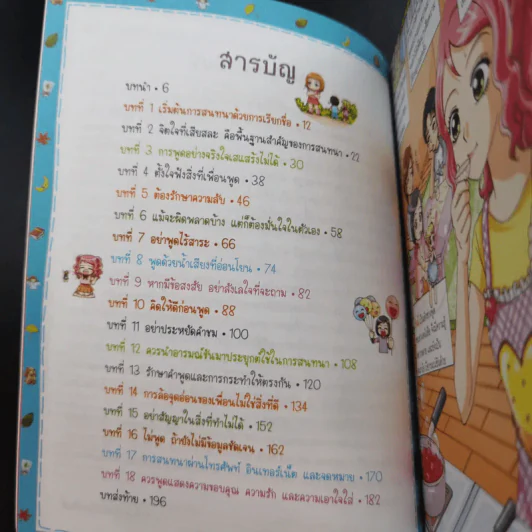 สารบัญ
บทนำ • 6
บทที่ 1 เริ่มต้นการสนทนาด้วยการเรียกชื่อ • 12
บทที่ 2 จิตใจที่เสียสละ คือพื้นฐานสำคัญของการสนทนา • 22
บทที่ 3 การพูดอย่างจริงใจเสแสร้งไม่ได้ • 30
บทที่ 4 ตั้งใจฟังสิ่งที่เพื่อนพูด • 38
บทที่ 5 ต้องรักษาความลับ • 46
บทที่ 6 แม้จะผิดพลาดบ้าง แต่ก็ต้องมั่นใจในตัวเอง • 58
บทที่ 7 อย่าพูดไร้สาระ • 66
บทที่ 8 พูดด้วยน้ำเสียงที่อ่อนโยน • 74
บทที่ 9 หากมีข้อสงสัย อย่าลังเลใจที่จะถาม • 82
บทที่ 10 คิดให้ดีก่อนพูด • 88
บทที่ 11 อย่าประหยัดคำชม • 100
บทที่ 12 ควรนำอารมณ์ขันมาประยุกต์ใช้ในการสนทนา • 108
บทที่ 13 รักษาคำพูดและการกระทำให้ตรงกัน • 120
บทที่ 14 การล้อจุดอ่อนของเพื่อนไม่ใช่สิ่งที่ดี • 134
บทที่ 15 อย่าสัญญาในสิ่งที่ทำไม่ได้ • 152
บทที่ 16 ไม่พูด ถ้ายังไม่มีข้อมูลชัดเจน • 162
บทที่ 17 การสนทนาผ่านโทรศัพท์ อินเทอร์เน็ต และจดหมาย • 170
บทที่ 18 ควรพูดแสดงความขอบคุณ ความรัก และความเอาใจใส่ • 182
บทส่งท้าย • 196